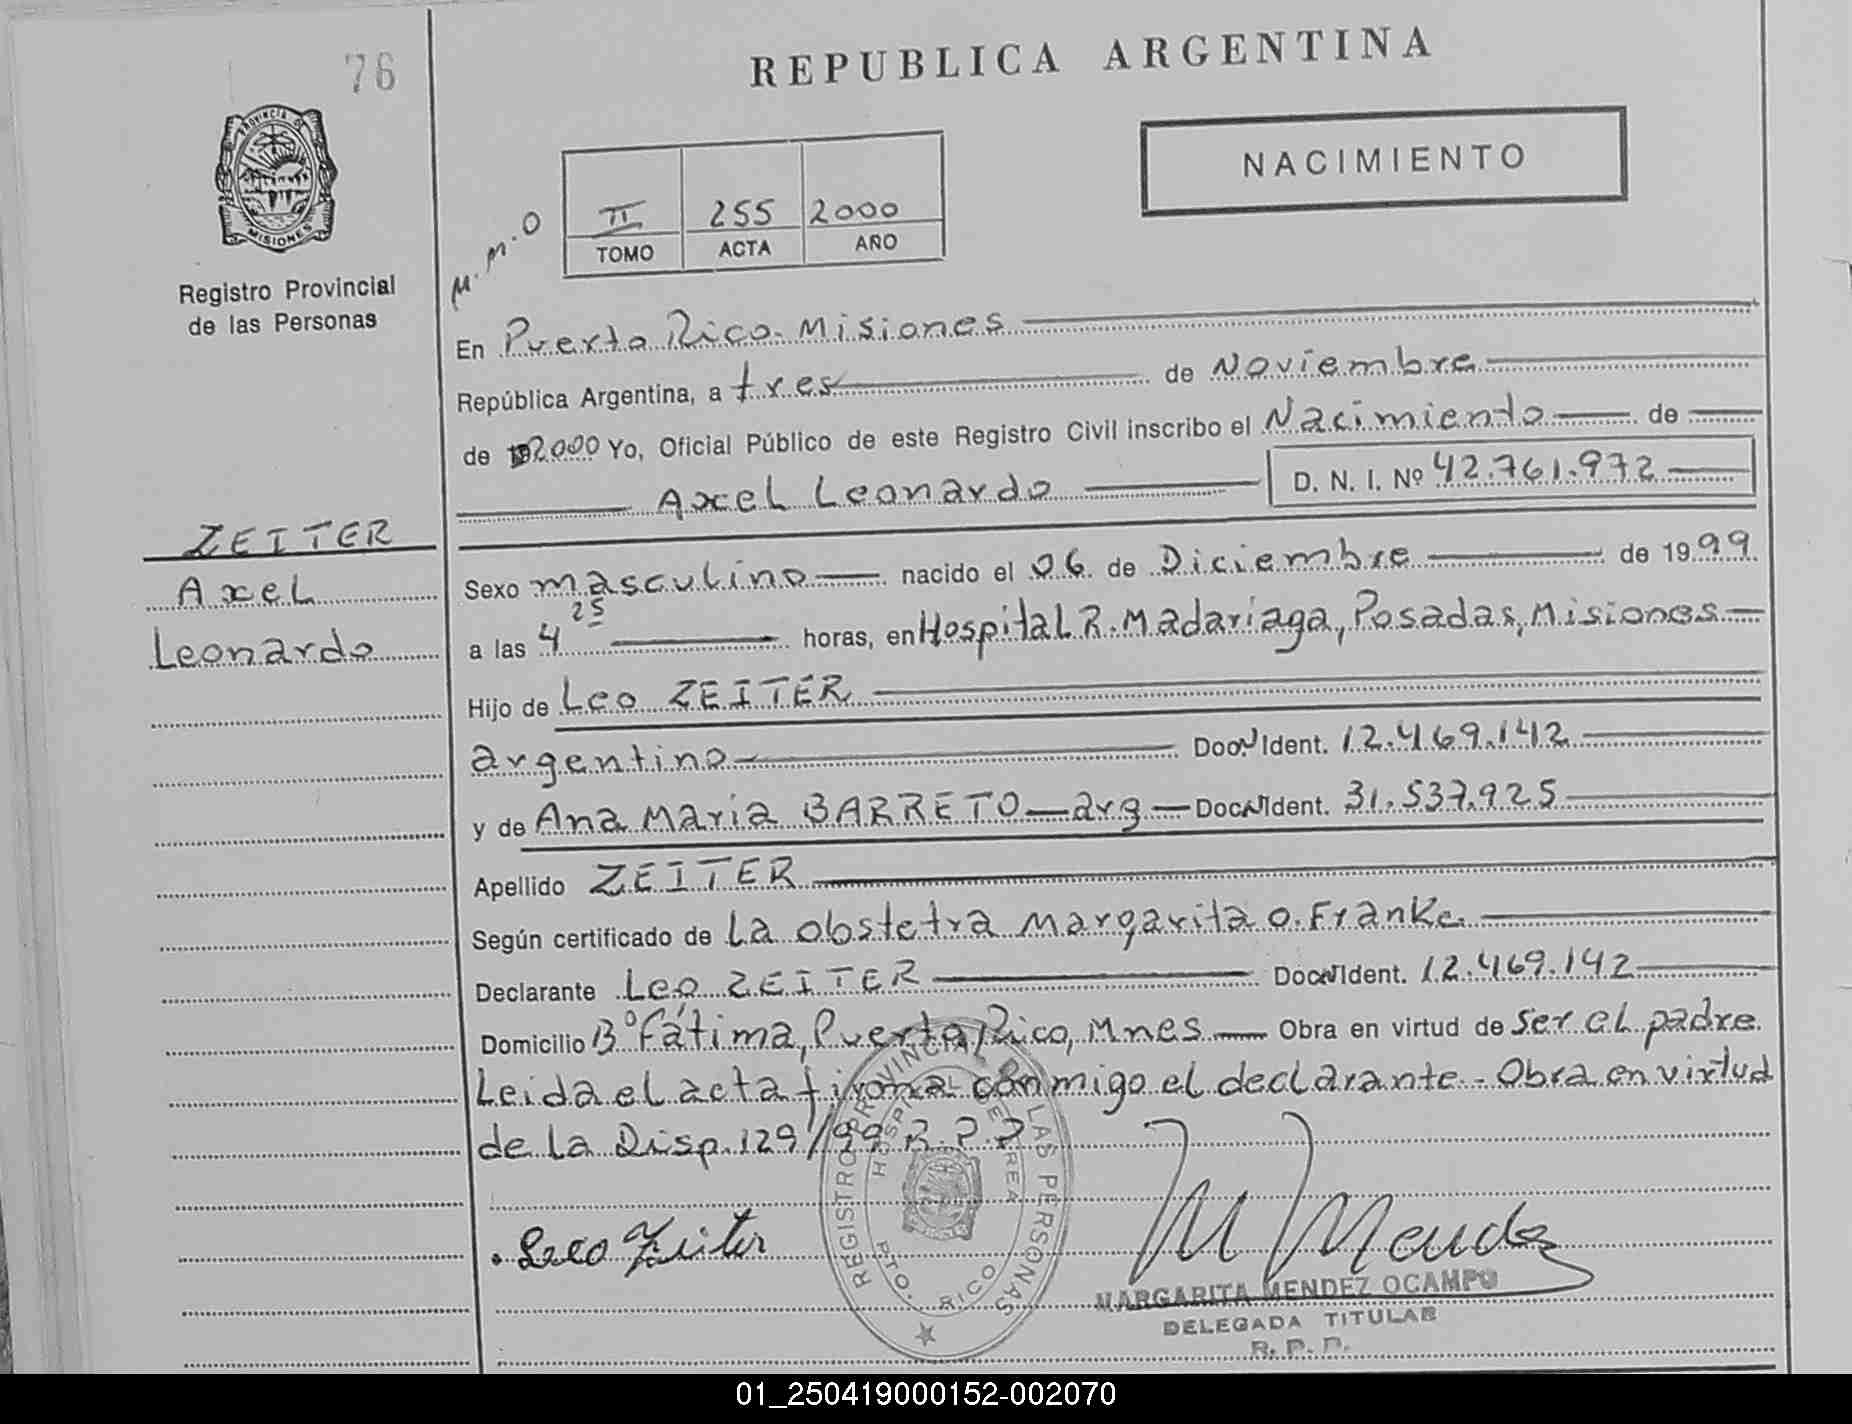 76
REPUBLICA ARGENTINA
PROVINCIA DE
MISIONES
NACIMIENTO
II 255 2000
TOMO ACTA AÑO
M.M.O
Registro Provincial
de las Personas
En Puerto Rico - Misiones
República Argentina, a tres de Noviembre
de 2000 Yo, Oficial Público de este Registro Civil inscribo el Nacimiento de
Axel Leonardo D. N. I. Nº 42.761.972
ZEITER
Axel
Leonardo
Sexo masculino nacido el 06 de Diciembre de 1999
a las 4 25 horas, en Hospital R. Madariaga, Posadas, Misiones
Hijo de Leo ZEITER
argentino Doc. Ident. 12.469.142
y de Ana Maria BARRETO - arg - Doc. Ident. 31.537.925
Apellido ZEITER
Según certificado de La obstetra Margarita O. Franke
Declarante Leo ZEITER Doc. Ident. 12.469.142
Domicilio Bº Fátima, Puerto Rico, Mnes Obra en virtud de ser el padre
Leida el acta firma conmigo el declarante - Obra en virtud
de la Disp. 129/99 R.P.P
REGISTRO PROVINCIAL DE LAS PERSONAS
HOSPITAL DE AREA
PTO. RICO
Leo Zeiter
M Mendez
MARGARITA MENDEZ OCAMPO
DELEGADA TITULAR
R. P. P.
01_250419000152-002070